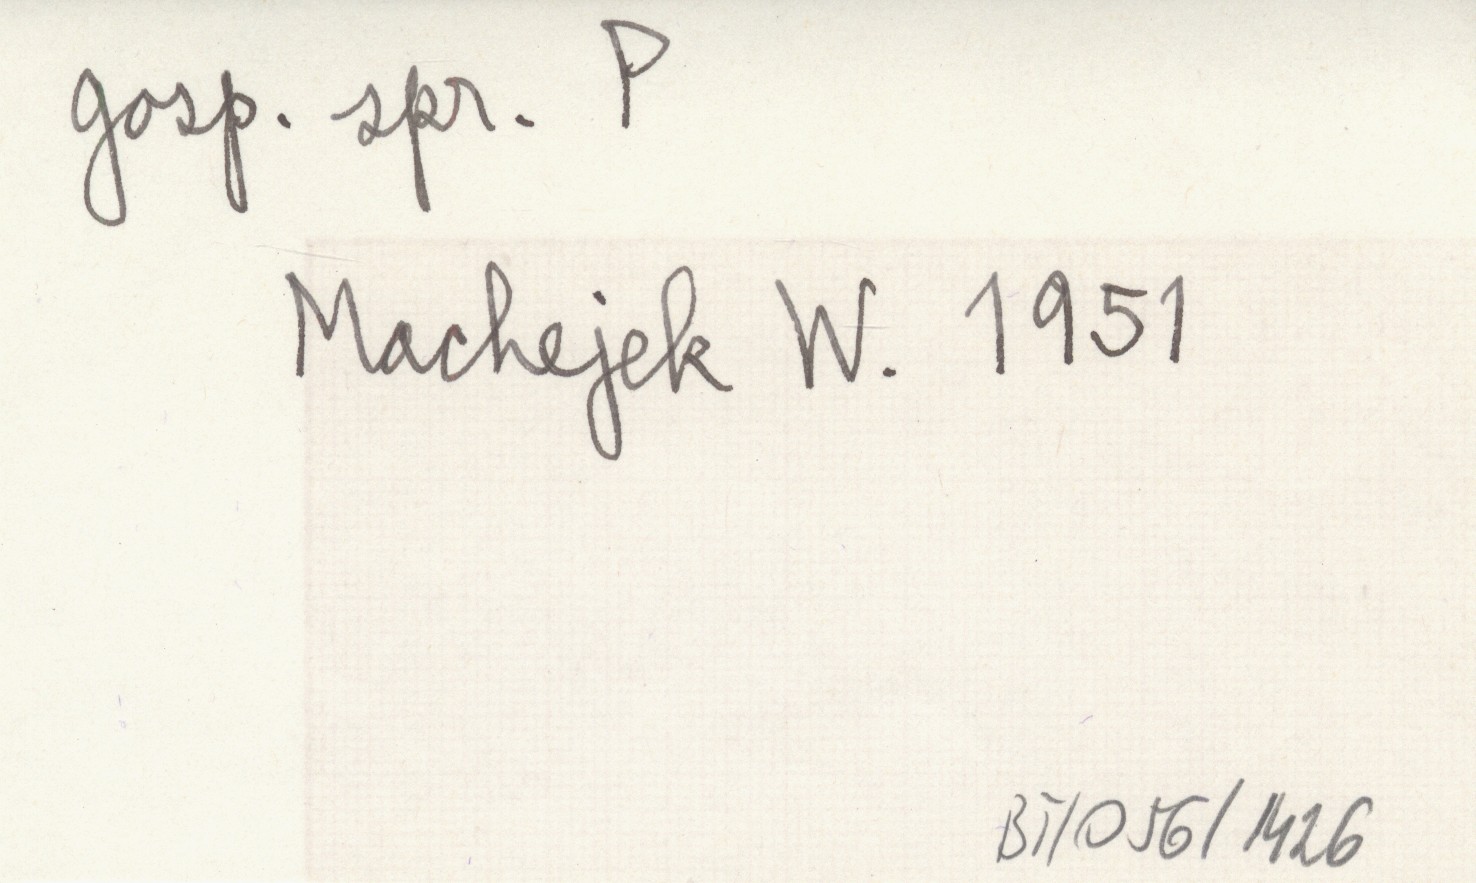 gosp. spr. P
Machejek W. 1951
BT/056/1426